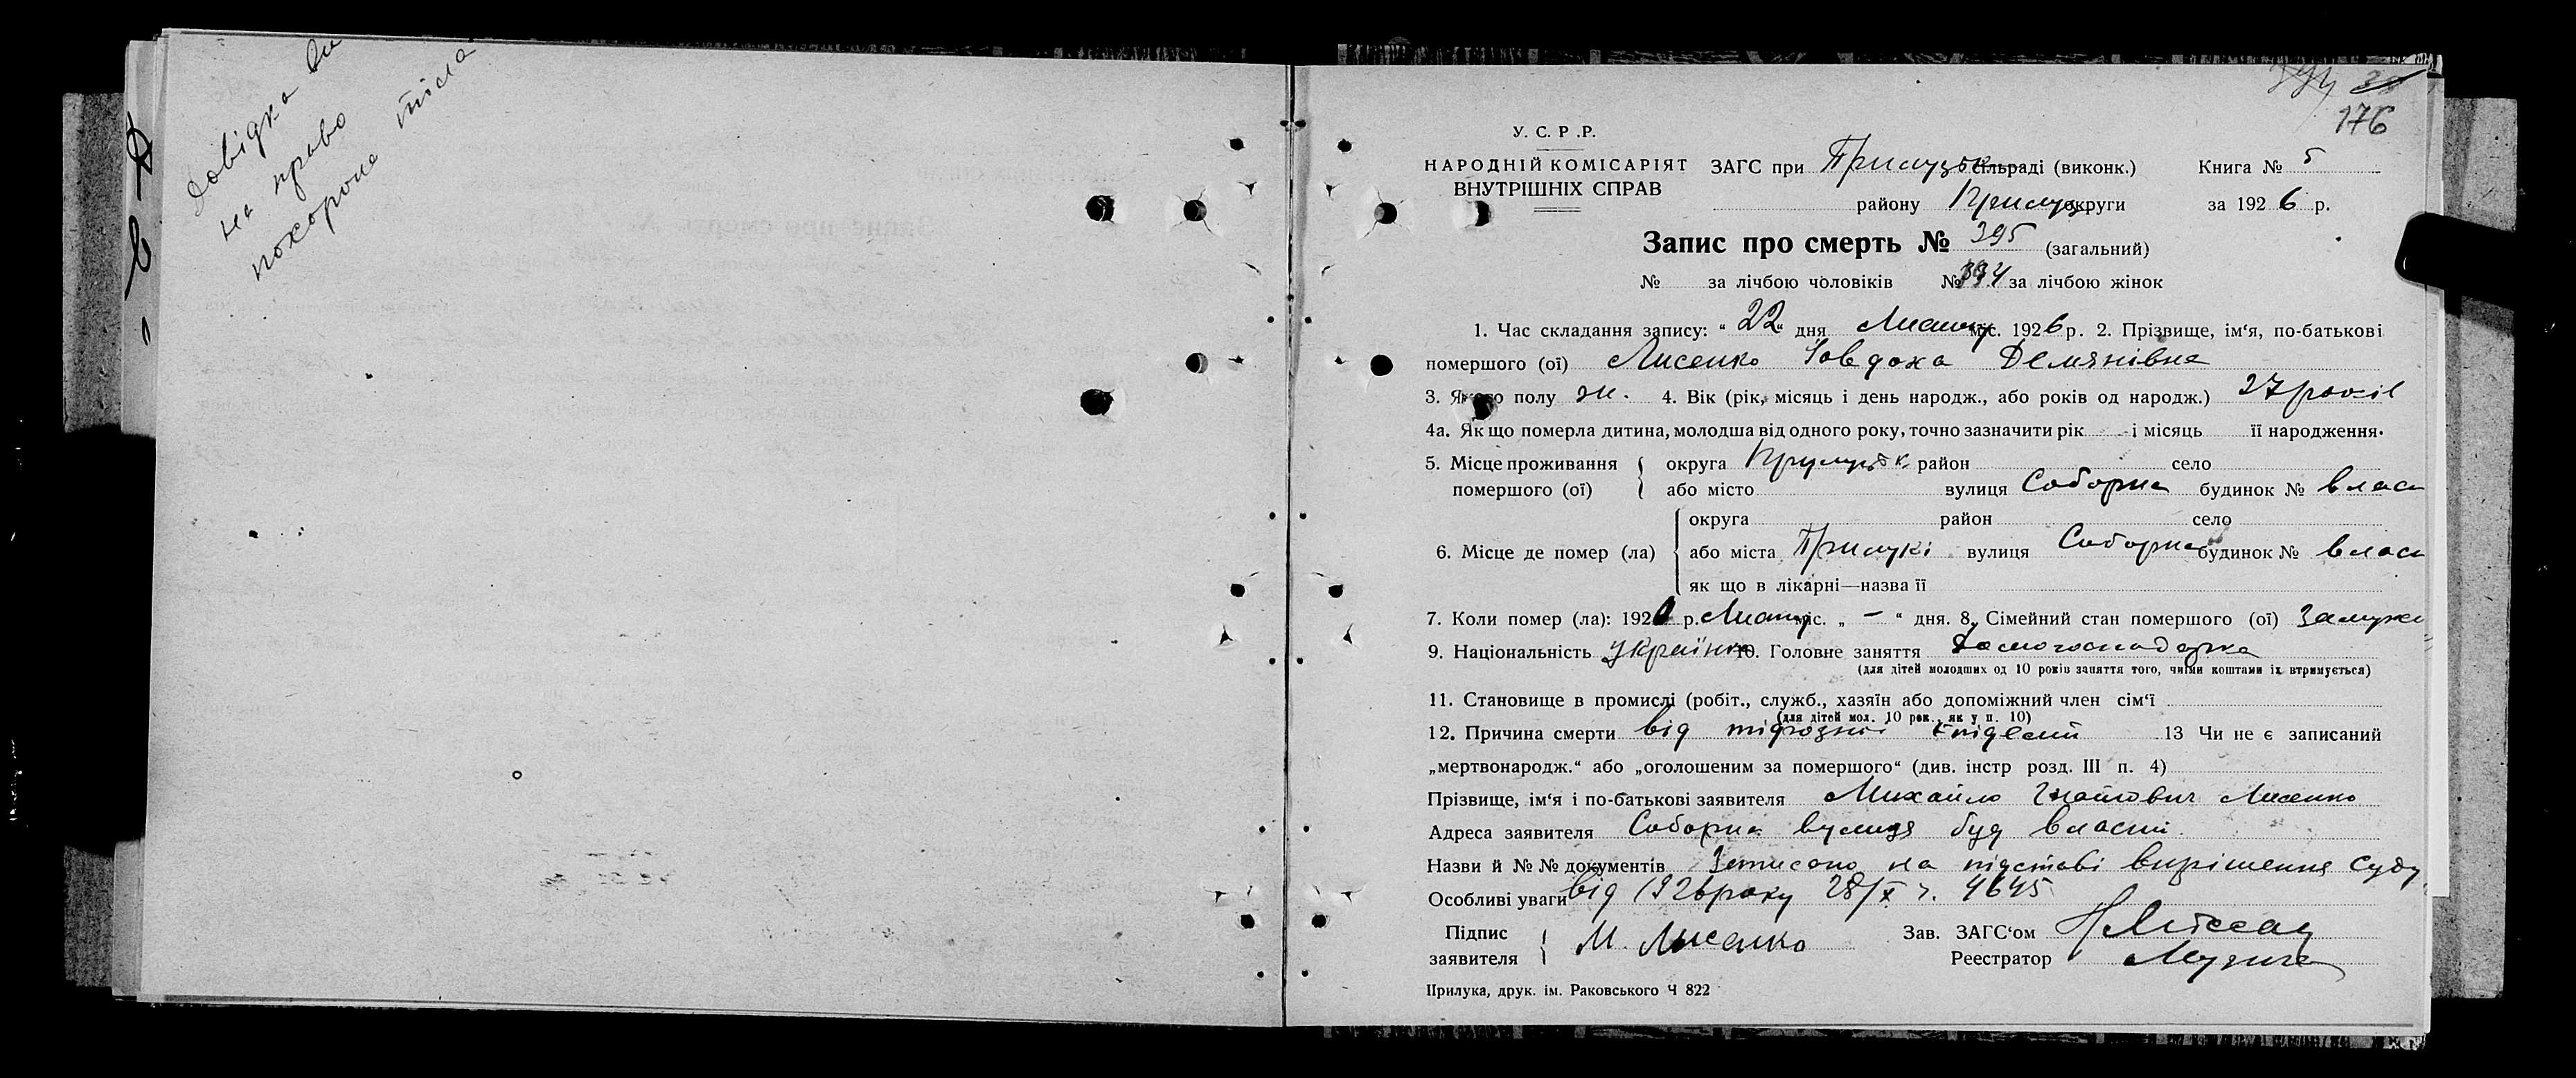 Довідка
на право
похорона тіла
176
У. С. Р .Р.
НАРОДНІЙ КОМІСАРІЯТ
ВНУТРІШНІХ СПРАВ
ЗАГС при Прилуцьк сільраді (виконк.) Книга № 5
району Прилуц округи за 1926 р.
Запис про смерть № 395 (загальний)
№ за лічбою чоловіків № 394 за лічбою жінок
1. Час складання запису: „ 22 “ дня міс. 1926 р. 2. Прізвище, ім‘я, по-батькові
помершого (ої) Лисенко Ївдоха Демянівна
3. Якого полу ж. 4. Вік (рік, місяць і день народж., або років од народж.) 27 років
4а. Як що померла дитина, молодша від одного року, точно зазначити рік і місяць її народження.
5. Місце проживання помершого (ої) округа Прилуцьк. район село
або місто вулиця Соборна будинок № власн
6. Місце де помер (ла) округа район село
або міста Прилукі вулиця Соборна будинок № власн
як що в лікарні—назва її
7. Коли помер (ла): 1920 р. міс. „ – “ дня. 8. Сімейний стан помершого (ої) Замужн
9. Національність українка 10. Головне заняття Домогосподарка
(для дітей молодших од 10 років заняття того, чиїми коштами їх втримується)
11. Становище в промислі (робіт., служб., хазяїн або допоміжний член сім‘ї
(для дітей мол. 10 рок., як у п. 10)
12. Причина смерти від тіфозної епідемії 13 Чи не є записаний
„мертвонародж.“ або „оголошеним за помершого“ (див. інстр розд. III п. 4)
Прізвище, ім‘я і по-батькові заявителя Михайло Гнатович Лисенко
Адреса заявителя Соборна вулиця буд власний
Назви й № № документів Записано на підставі вирішення суду
Особливі уваги від 1926 року 28/X ч. 4645
Підпис заявителя М. Лисенко Зав. ЗАГС‘ом
Реестратор
Прилука, друк. ім. Раковського Ч 822